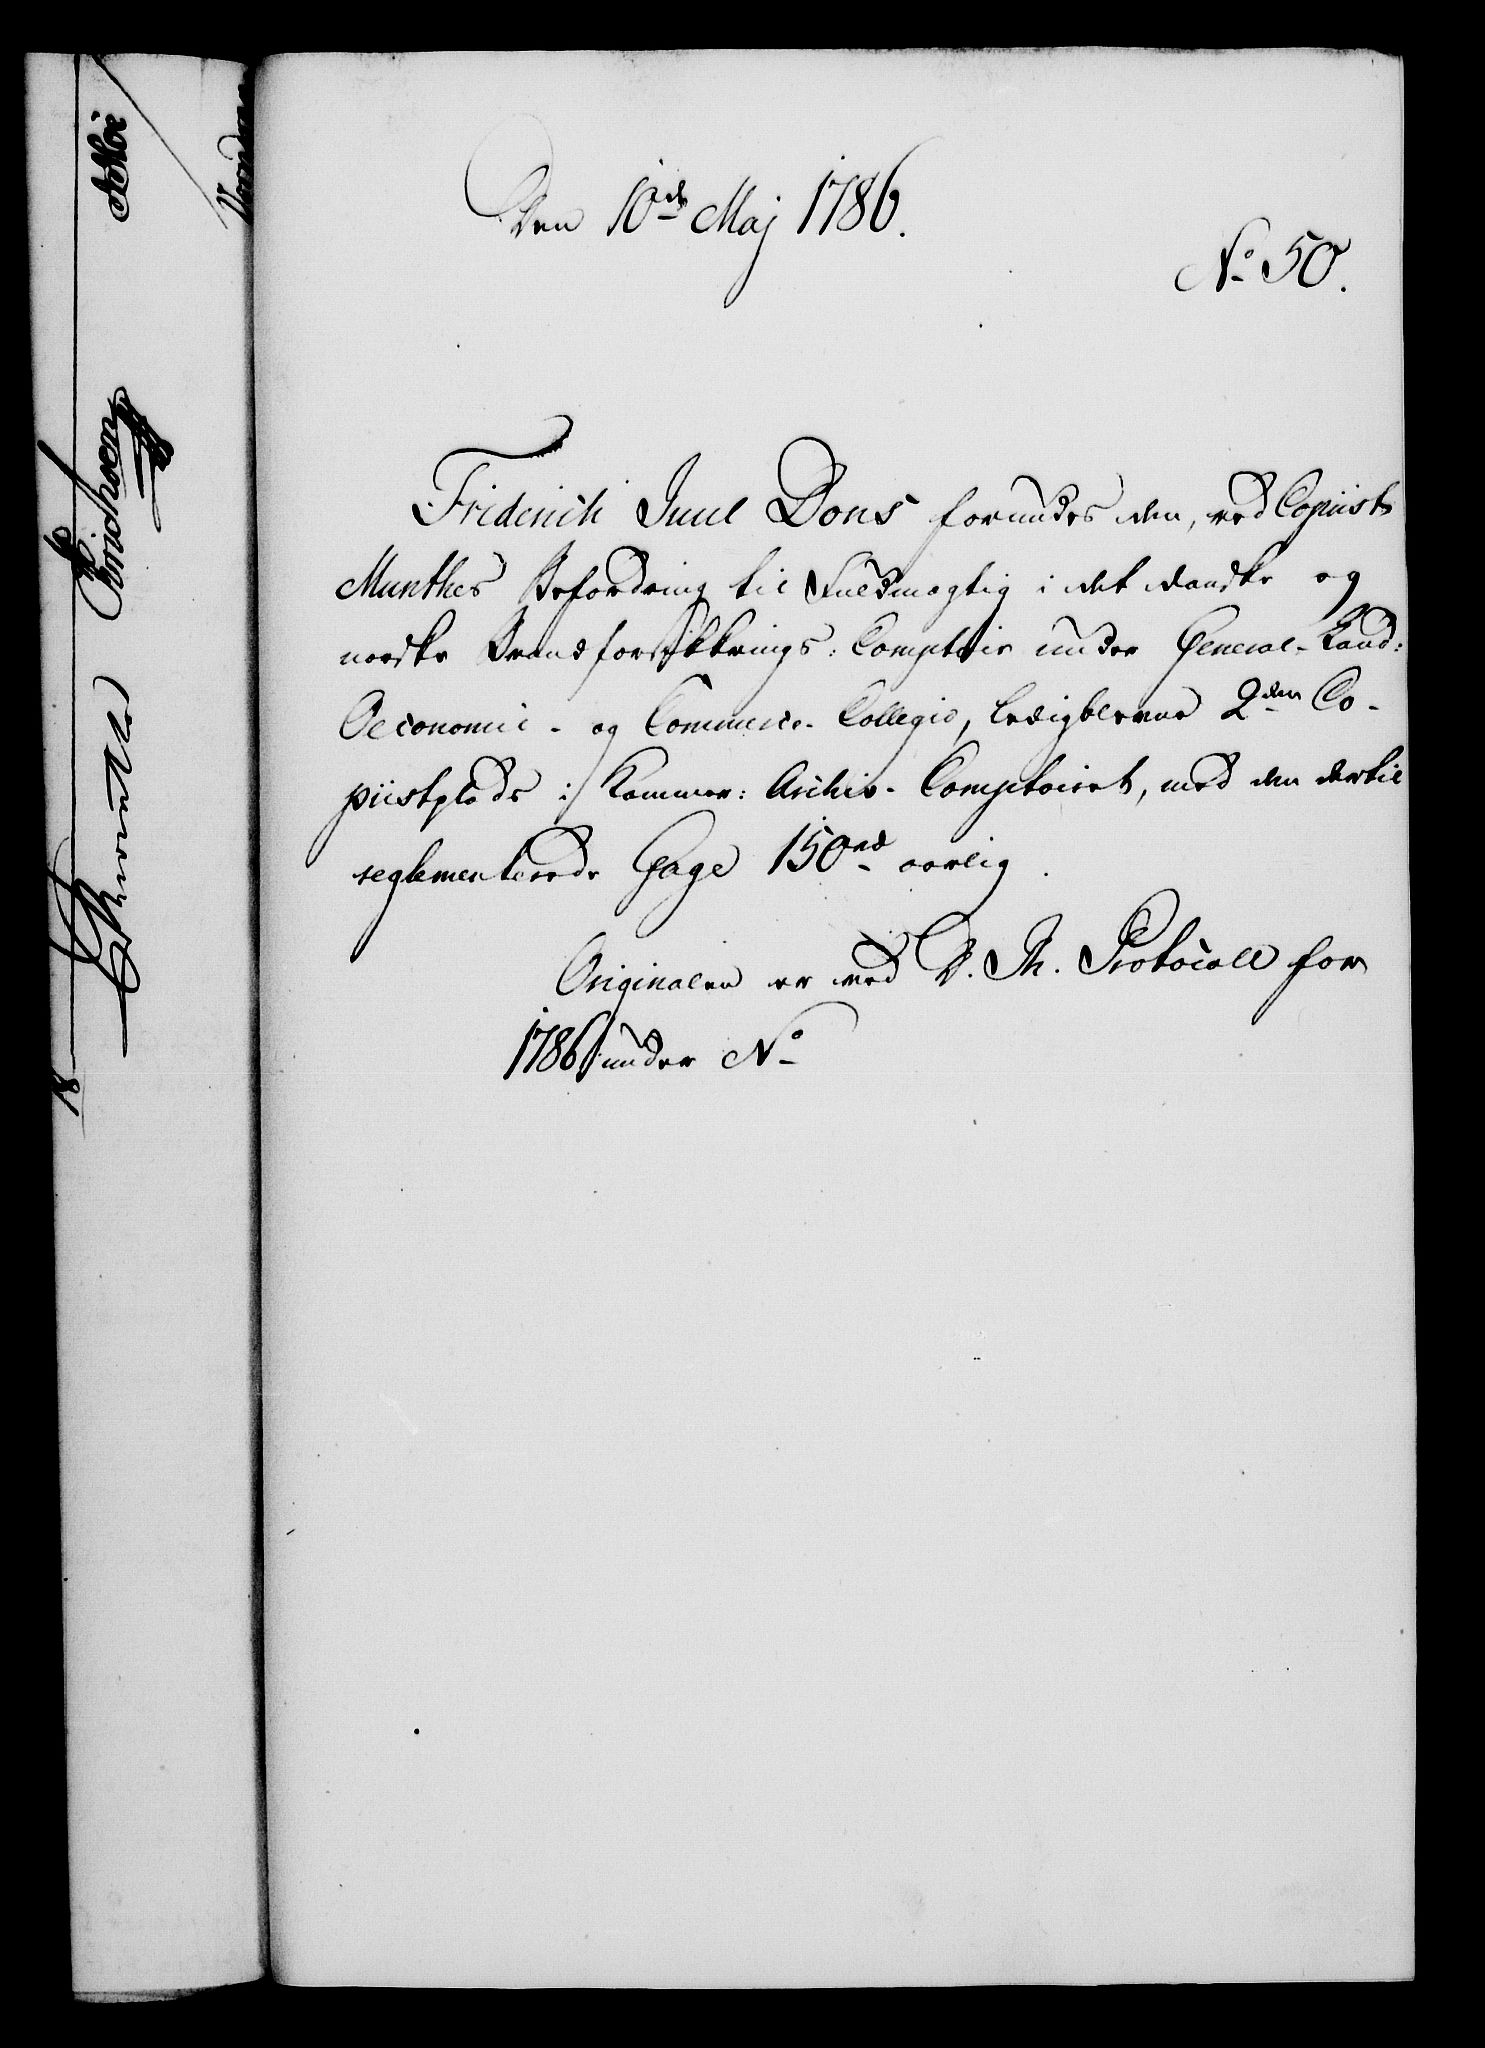 Den 10de Maj 1786.
No 50.
Friderich Juul Dons forundes den, ved Copiist
Munthes Befordring til Fuldmægtig i det danske og
norske Brandforsikkrings-Comptoir under General-Land-
Oeconomie- og Commerce-Collegio, ledigblevne 2den Co-
piistplads i Kammer-Archiv-Comptoiret, med den dertil
reglementerede Gage 150 rd aarlig.
Originalen er ved D. Th. Protocoll for
1786 under No